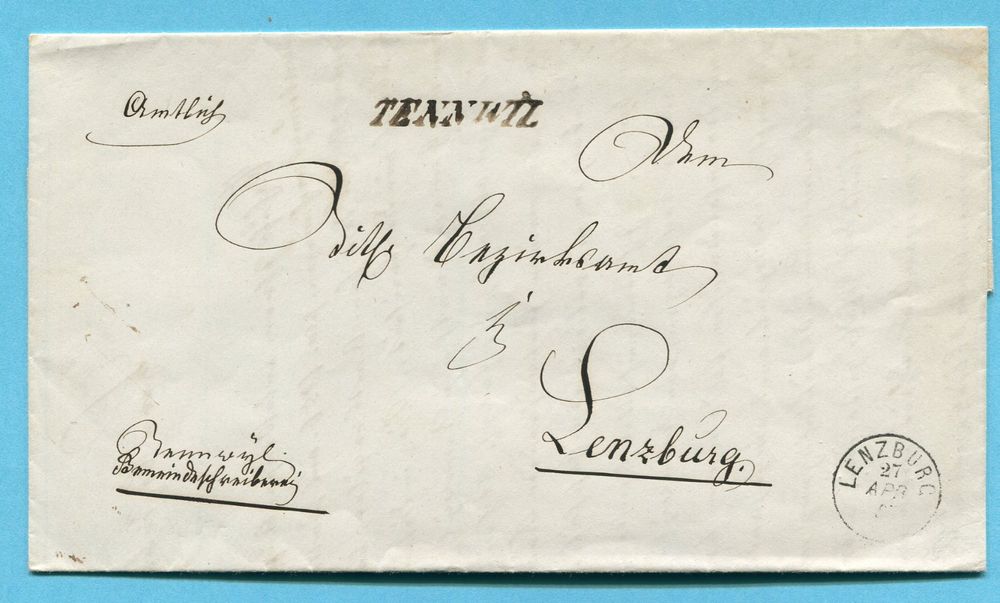 Amtlich
TENNWIL
Dem
Bezirksamt
Lenzburg.
Tennwyl.
Gemeindeschreiberei
LENZBURG
27
APR